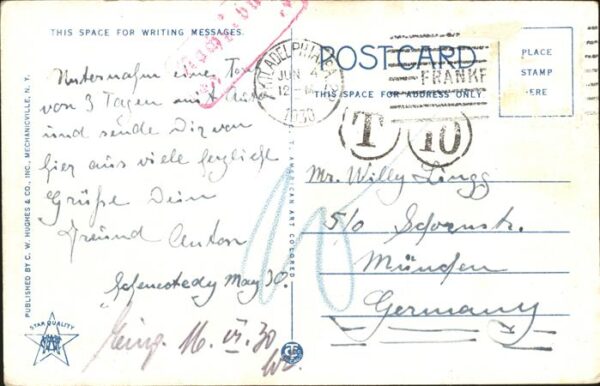 THIS SPACE FOR WRITING MESSAGES.
POSTCARD
THIS SPACE FOR ADDRESS ONLY
PLACE
STAMP
HERE
PHILADELPHIA, PA.
JUN 4
12
1930
FRANKF
T
10
Unternahm eine Tour
von 3 Tagen mit
und sende Dir von
hier aus viele herzlichst
Grüße Dein
Freund Anton
Schenectedy May 30
Eing. 16. VI. 30
Mr. Willy Lingg
5/0
München
Germany
PUBLISHED BY C. W. HUGHES & CO., INC., MECHANICVILLE, N. Y.
AMERICAN ART COLORED
STAR QUALITY